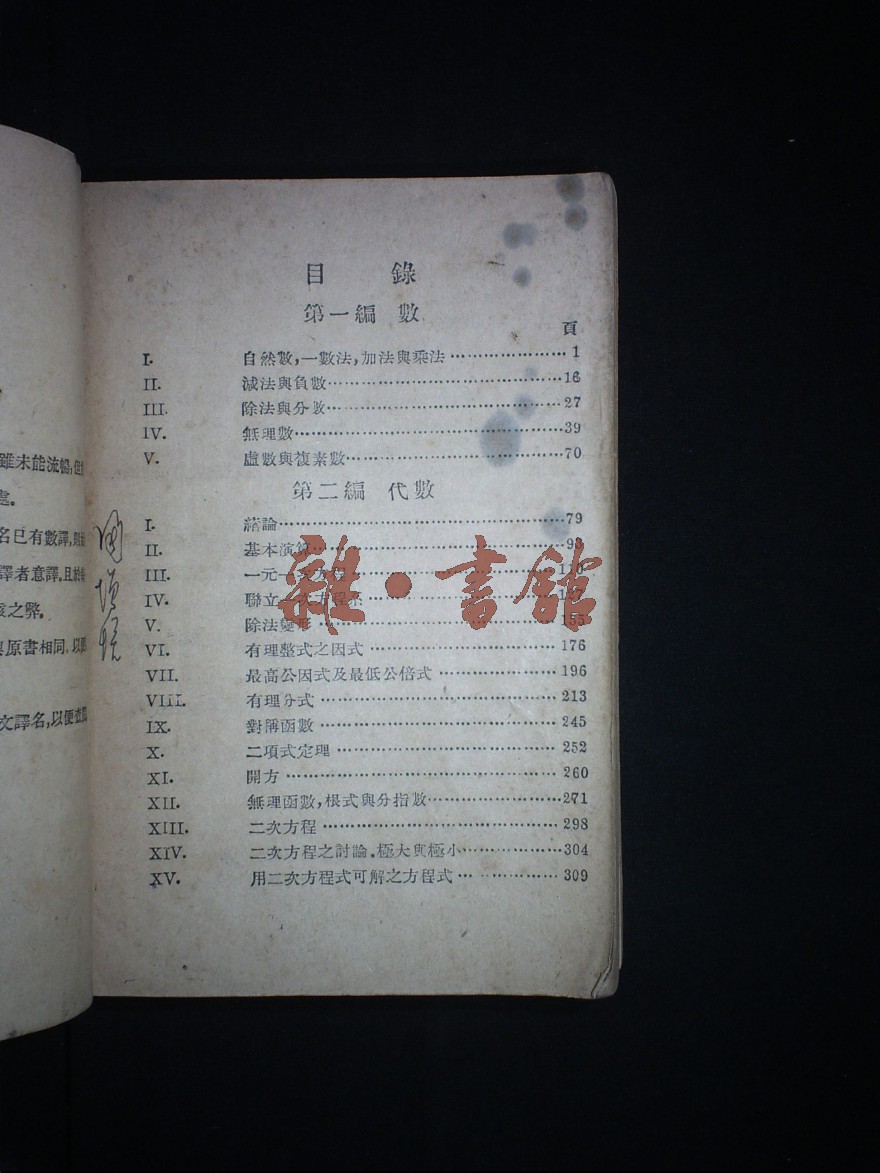 雖未能流暢,但
處。
名已有數譯,
譯者意譯,且於
之弊。
與原書相同,以
文譯名,以便查
目 錄
第一編 數
頁
I. 自然數,一數法,加法與乘法…………………1
II. 減法與負數……………………………………16
III. 除法與分數……………………………………27
IV. 無理數…………………………………………39
V. 虛數與複素數…………………………………70
第二編 代數
I. 緒論……………………………………………79
II. 基本演算………………………………………93
III. 一元一次方程
IV. 聯立一次方程系
V. 除法變形………………………………………155
VI. 有理整式之因式………………………………176
VII. 最高公因式及最低公倍式……………………196
VIII. 有理分式………………………………………213
IX. 對稱函數………………………………………245
X. 二項式定理……………………………………252
XI. 開方……………………………………………260
XII. 無理函數,根式與分指數……………………271
XIII. 二次方程………………………………………298
XIV. 二次方程之討論.極大與極小………………304
XV. 用二次方程式可解之方程式…………………309
雜·書館